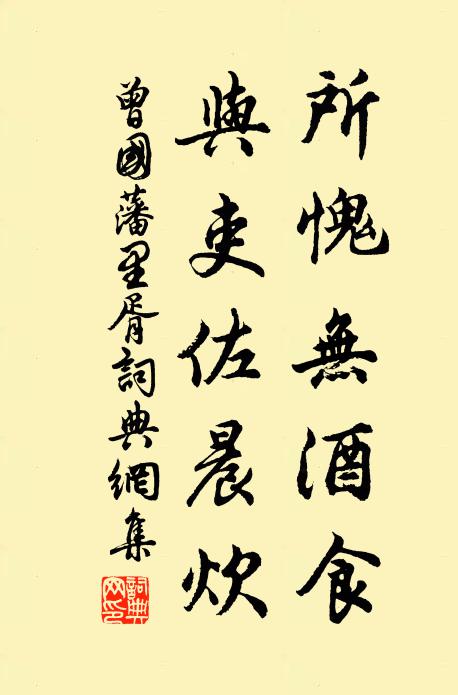 所愧無酒食
與吏佐晨炊
曾國藩里胥詞典網集
詞典网印